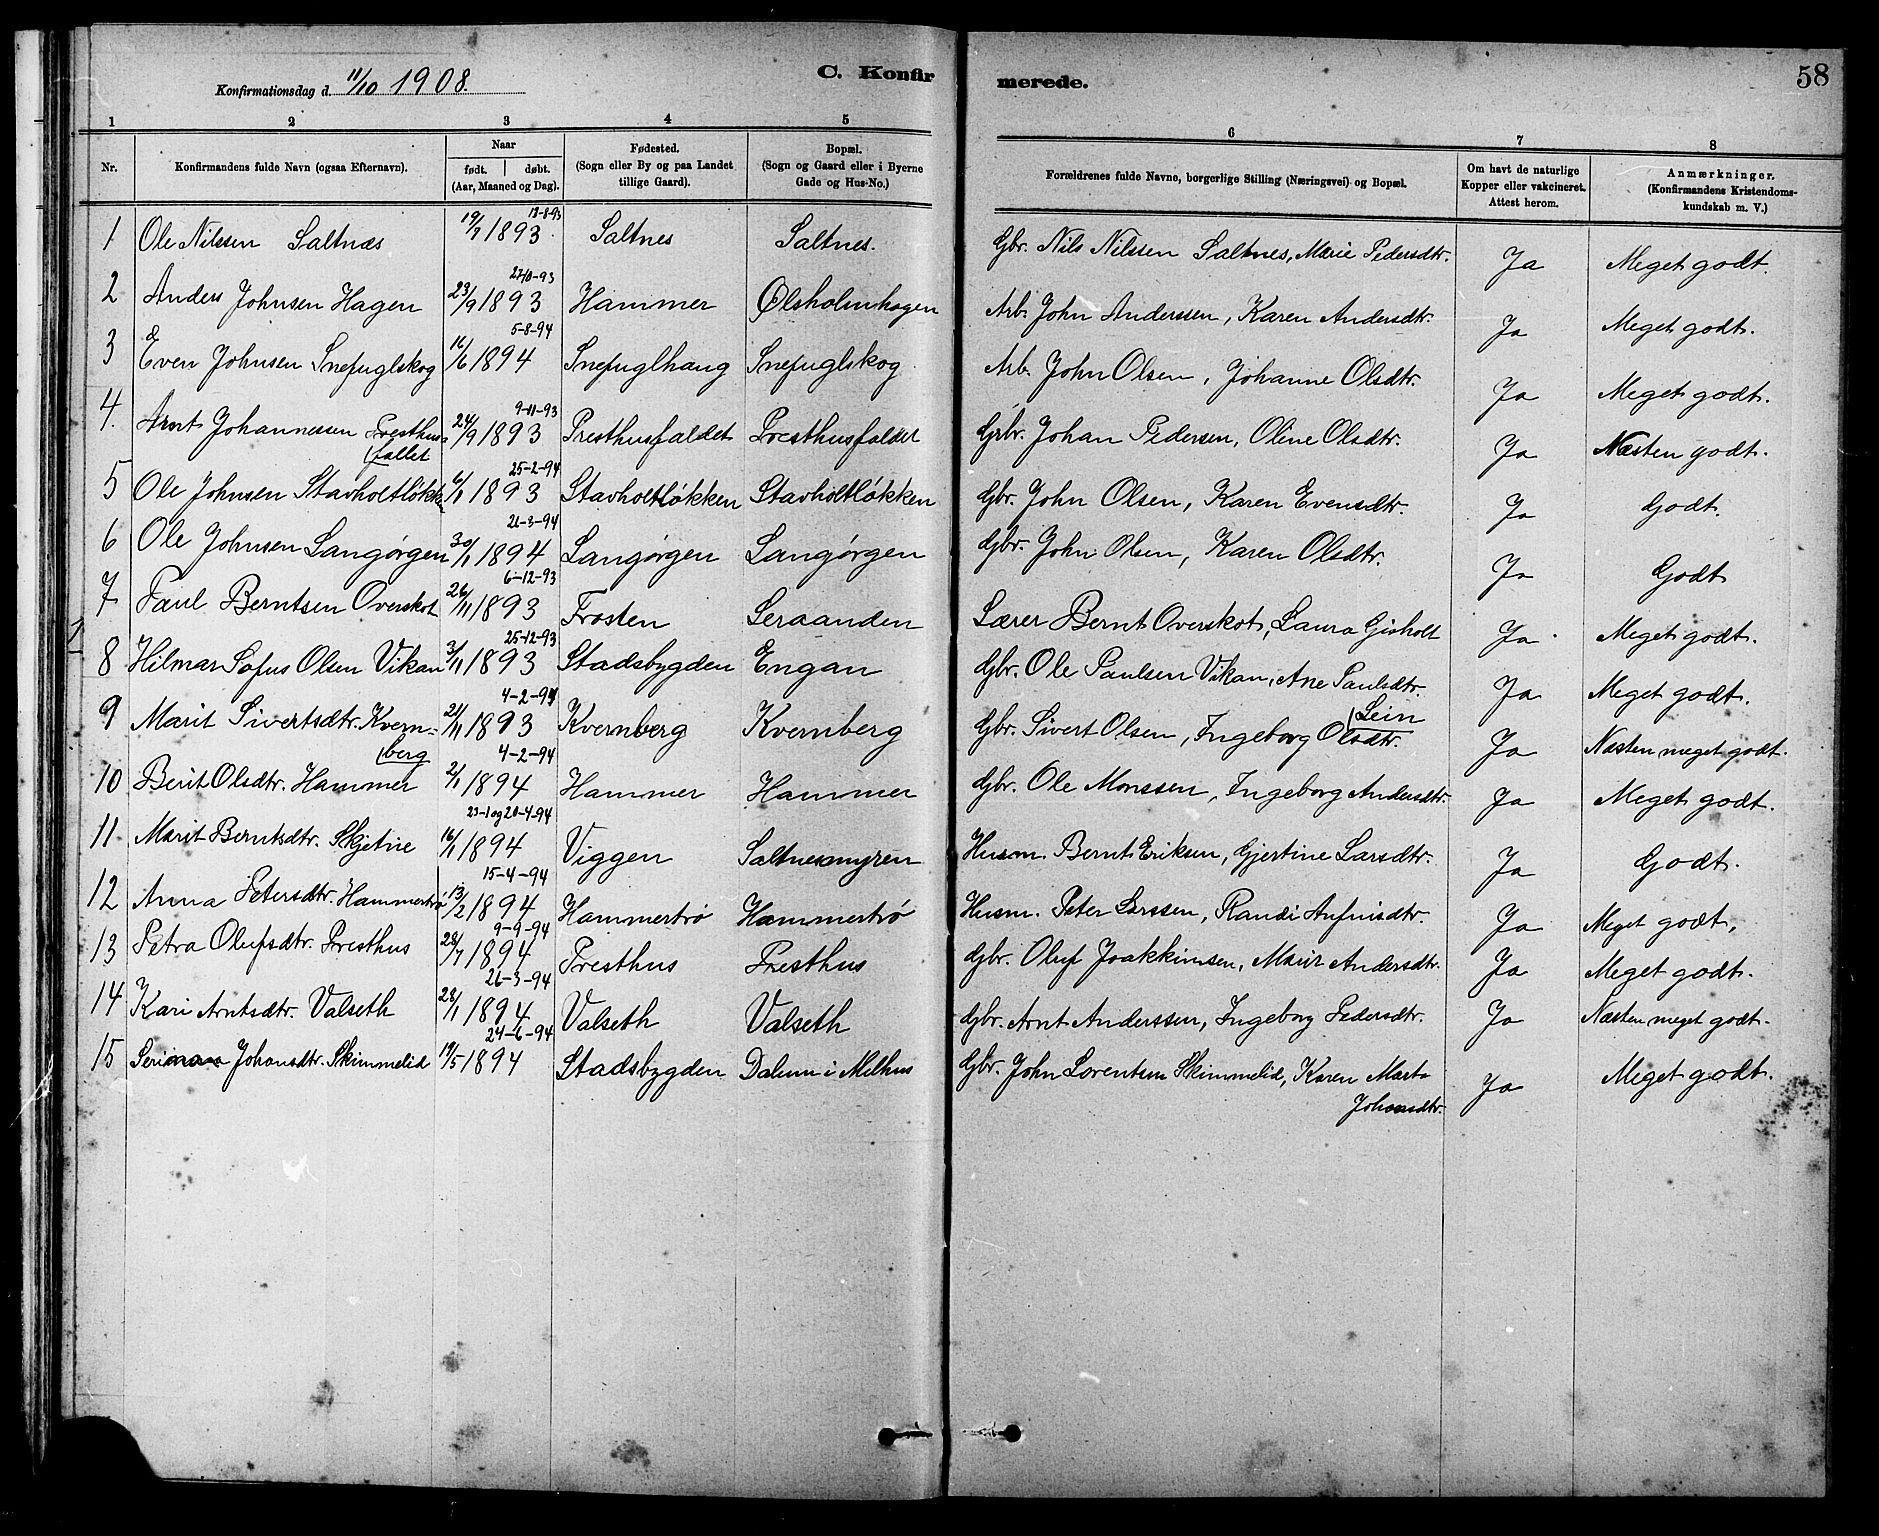 Konfirmationsdag d. 11/10 1908.
C. Konfirmerede.
58
1 2 3 4 5 6 7 8
Nr. Konfirmandens fulde Navn (ogsaa Efternavn). Naar født. døbt. (Aar, Maaned og Dag). Fødested. (Sogn eller By og paa Landet tillige Gaard). Bopæl. (Sogn og Gaard eller i Byerne Gade og Hus-No.) Forældrenes fulde Navne, borgerlige Stilling (Næringsvei) og Bopæl. Om havt de naturlige Kopper eller vakcineret. Attest herom. Anmærkninger. (Konfirmandens Kristendomskundskab m. V.)
1 Ole Nilssen Saltnæs 19/7 1893 13-8-93 Saltnes Saltnes. Gbr. Nils Nilssen Saltnes, Marie Pedersdtr. Ja Meget godt.
2 Anders Johnsen Hagen 23/9 1893 27/10-93 Hammer Ølsholmhagen Arb. John Anderssen, Karen Andersdtr. Ja Meget godt.
3 Even Johnsen Snefuglskog 16/6 1894 5-8-94 Snefuglhaug Snefuglskog Arb. John Olsen, Johanne Olsdtr. Ja Meget godt.
4. Arnt Johannessen Presthusfallet 24/9 1893 9-11-93 Presthusfaldet Presthusfaldet Gbr. Johan Pedersen, Oline Olsdtr. Ja Næsten godt.
5 Ole Johnsen Stavholtløkken 6/1 1893 25-2-94 Stavholtløkken Stavholtløkken Gbr. John Olsen, Karen Evensdtr. Ja Godt.
6 Ole Johnsen Langørgen 30/1 1894 26-3-94 Langørgen Langørgen Gbr. John Olsen, Karen Olsdtr. Ja Godt
7 Paul Berntsen Overskot 26/11 1893 6-12-93 Frosten Leraanden Lærer Bernt Overskot, Laura Gisholt Ja Meget godt.
8 Hilmar Sofus Olsen Vikan 3/11 1893 25-12-93 Stadsbygden Engan Gbr. Ole Paulsen Vikan, Ane Paulsdtr. Ja Meget godt.
9 Marit Sivertsdtr. Kvernberg 21/11 1893 4-2-94 Kvernberg Kvernberg Gbr. Sivert Olsen, Ingeborg Olsdtr. Lein Ja Næsten meget godt.
10 Berit Olsdtr. Hammer 2/1 1894 4-2-94 Hammer Hammer Gbr. Ole Monssen, Ingeborg Andersdtr. Ja Meget godt.
11 Marit Berntsdtr. Skjetne 16/1 1894 23-1 og 20-4-94 Viggen Saltnesmyren Husm. Bernt Eriksen, Gjertine Larsdtr. Ja Godt.
12 Anna Petersdtr. Hammertrø 13/2 1894 15-4-94 Hammertrø Hammertrø Husm. Peter Larssen, Randi Arfinisdtr. Ja Meget godt,
13 Petra Olufsdtr. Presthus 28/7 1894 9-9-94 Presthus Presthus Gbr. Oluf Joakkimsen, Marit Andersdtr. Ja Meget godt.
14 Kari Arntsdtr. Valseth 28/1 1894 26-3-94 Valseth Valseth Gbr. Arnt Anderssen, Ingeborg Pedersdtr. Ja Næsten meget godt.
15 Johansdtr. Skimmelid 19/5 1894 24-6-94 Stadsbygden Dalum i Melhus Gbr. John Lorentsen Skimmelid, Karen Marta Johansdtr. Ja Meget godt.